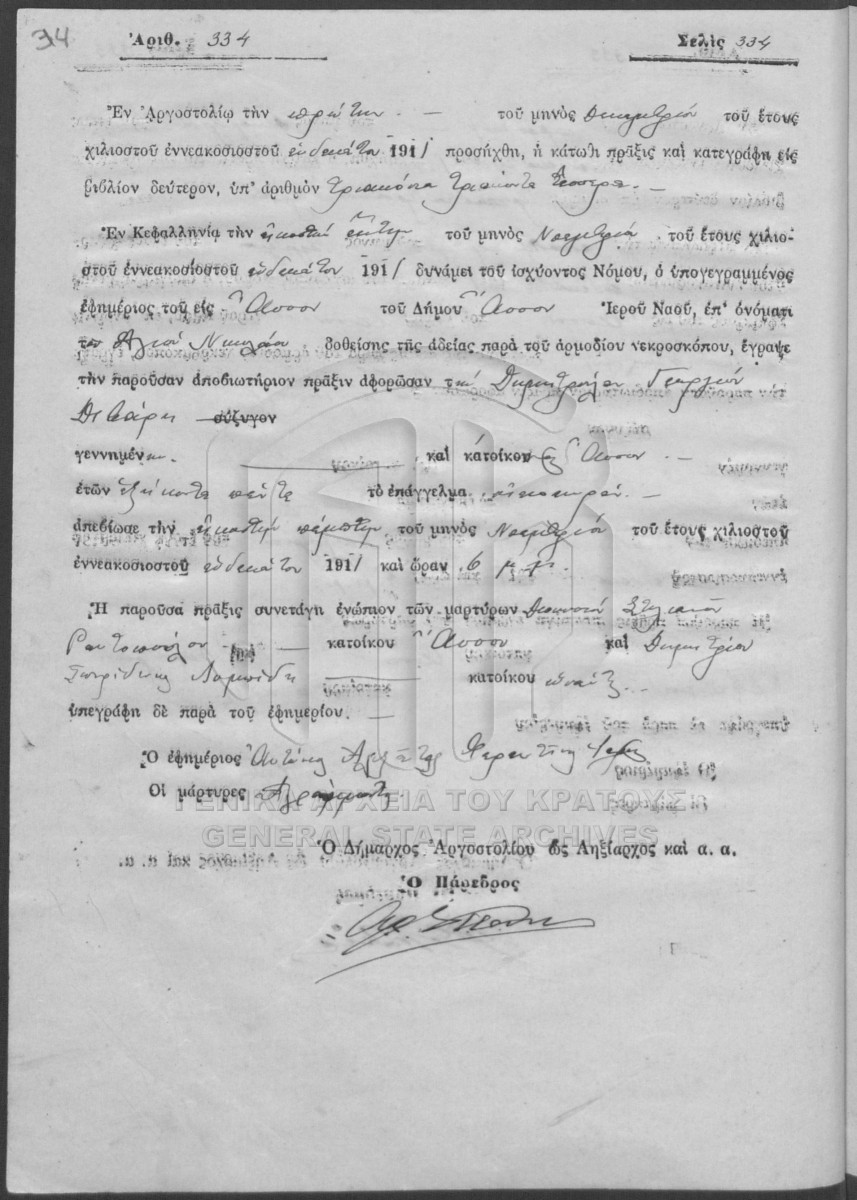 34
Ἀριθ. 334
Σελὶς 334
Ἐν Ἀργοστολίῳ τὴν πρώτην τοῦ μηνὸς Δεκεμβρίου τοῦ ἔτους
χιλιοστοῦ ἐννεακοσιοστοῦ ἑνδεκάτου 1911 προσήχθη, ἡ κάτωθι πρᾶξις καὶ κατεγράφη εἰς
βιβλίον δεύτερον, ὑπ' ἀριθμὸν τριακόσια τριάκοντα τέσσερα.
Ἐν Κεφαλληνίᾳ τὴν εἰκοστὴν ἕκτην τοῦ μηνὸς Νοεμβρίου τοῦ ἔτους χιλιο-
στοῦ ἐννεακοσιοστοῦ ἑνδεκάτου 1911 δυνάμει τοῦ ἰσχύοντος Νόμου, ὁ ὑπογεγραμμένος
ἐφημέριος τοῦ εἰς Ἄσσον τοῦ Δήμου Ἄσσου Ἱεροῦ Ναοῦ, ἐπ' ὀνόματι
του Ἁγίου Νικολάου δοθείσης τῆς ἀδείας παρὰ τοῦ ἁρμοδίου νεκροσκόπου, ἔγραψε
τὴν παροῦσαν ἀποβιωτήριον πρᾶξιν ἀφορῶσαν Γεωργίου
σύζυγον
γεννημέν καὶ κάτοικον Ἄσσου
ἐτῶν ἑξήκοντα πέντε τὸ ἐπάγγελμα οἰκοκυρά.
ἀπεβίωσε τὴν εἰκοστὴν πέμπτην τοῦ μηνὸς Νοεμβρίου τοῦ ἔτους χιλιοστοῦ
ἐννεακοσιοστοῦ ἑνδεκάτου 1911 καὶ ὥραν 6 μ.μ.
Ἡ παροῦσα πρᾶξις συνετάγη ἐνώπιον τῶν μαρτύρων Διονυσίου Στυλιανοῦ
κατοίκου Ἄσσου καὶ Δημητρίου
Σπυρίδωνος κατοίκου
ὑπεγράφη δὲ παρὰ τοῦ ἐφημερίου.
Ὁ ἐφημέριος
Οἱ μάρτυρες Ἀγράμματοι
ΓΕΝΙΚΑ ΑΡΧΕΙΑ ΤΟΥ ΚΡΑΤΟΥΣ
GENERAL STATE ARCHIVES
Ὁ Δήμαρχος Ἀργοστολίου ὡς Ληξίαρχος καὶ α. α.
Ὁ Πάρεδρος